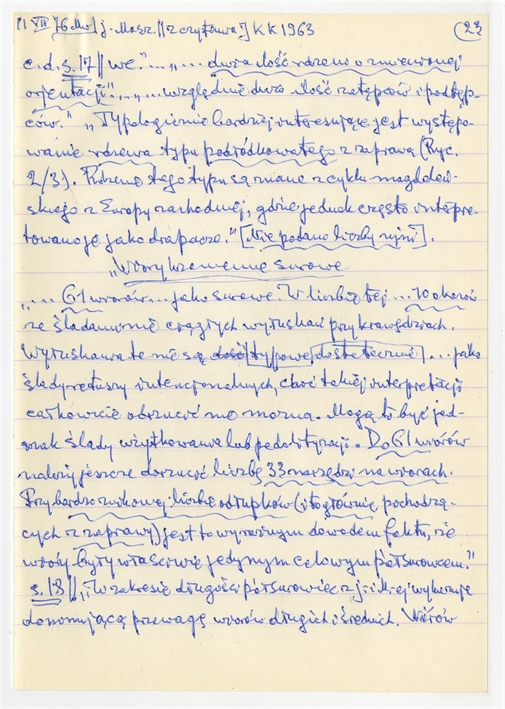 j. Masz. [z czytawa] KK 1963 23
c.d. s. 17 || we." „... duża ilość rdzeni o zmienionej
orjentacji" „... względnie duża ilość zatępców i podtęp-
ców." „Typologicznie bardziej interesujące jest występo-
wanie rdzenia typu podśródkowatego z zaprawą (Ryc.
2/3). Rdzenie tego typu są znane z cyklu magdaleń-
skiego z Europy zachodniej, gdzie jednak często interpre-
towano je jako drapacze." [Nie podano liczby ryjni].
„Wióry krzemienne surowe
„... 61 wiórów... jako surowe. W liczbie tej ... 10 okazów
ze śladami nie ciągłych wyłuskań przy krawędziach.
Wyłuskiwania te nie są dość [typowe, dostatecznie] ... jako
ślady retuszy intencjonalnych, choć takiej interpretacji
całkowicie odrzucić nie można. Mogą to być jed-
nak ślady użytkowania lub pedolityzacji. Do 61 wiórów
należy jeszcze dorzucić liczbę 33 narzędzi na wiórach.
Przy bardzo znikomej liczbie odłupków (i to głównie pochodzą-
cych z zaprawy) jest to wyraźnym dowodem faktu, że
wióry były właściwie jedynym celowym półsurowcem."
s. 18 || „W zakresie długości półsurowiec z j. i dużej wykazuje
dominującą przewagę wiórów długich i średnich. Wiórów